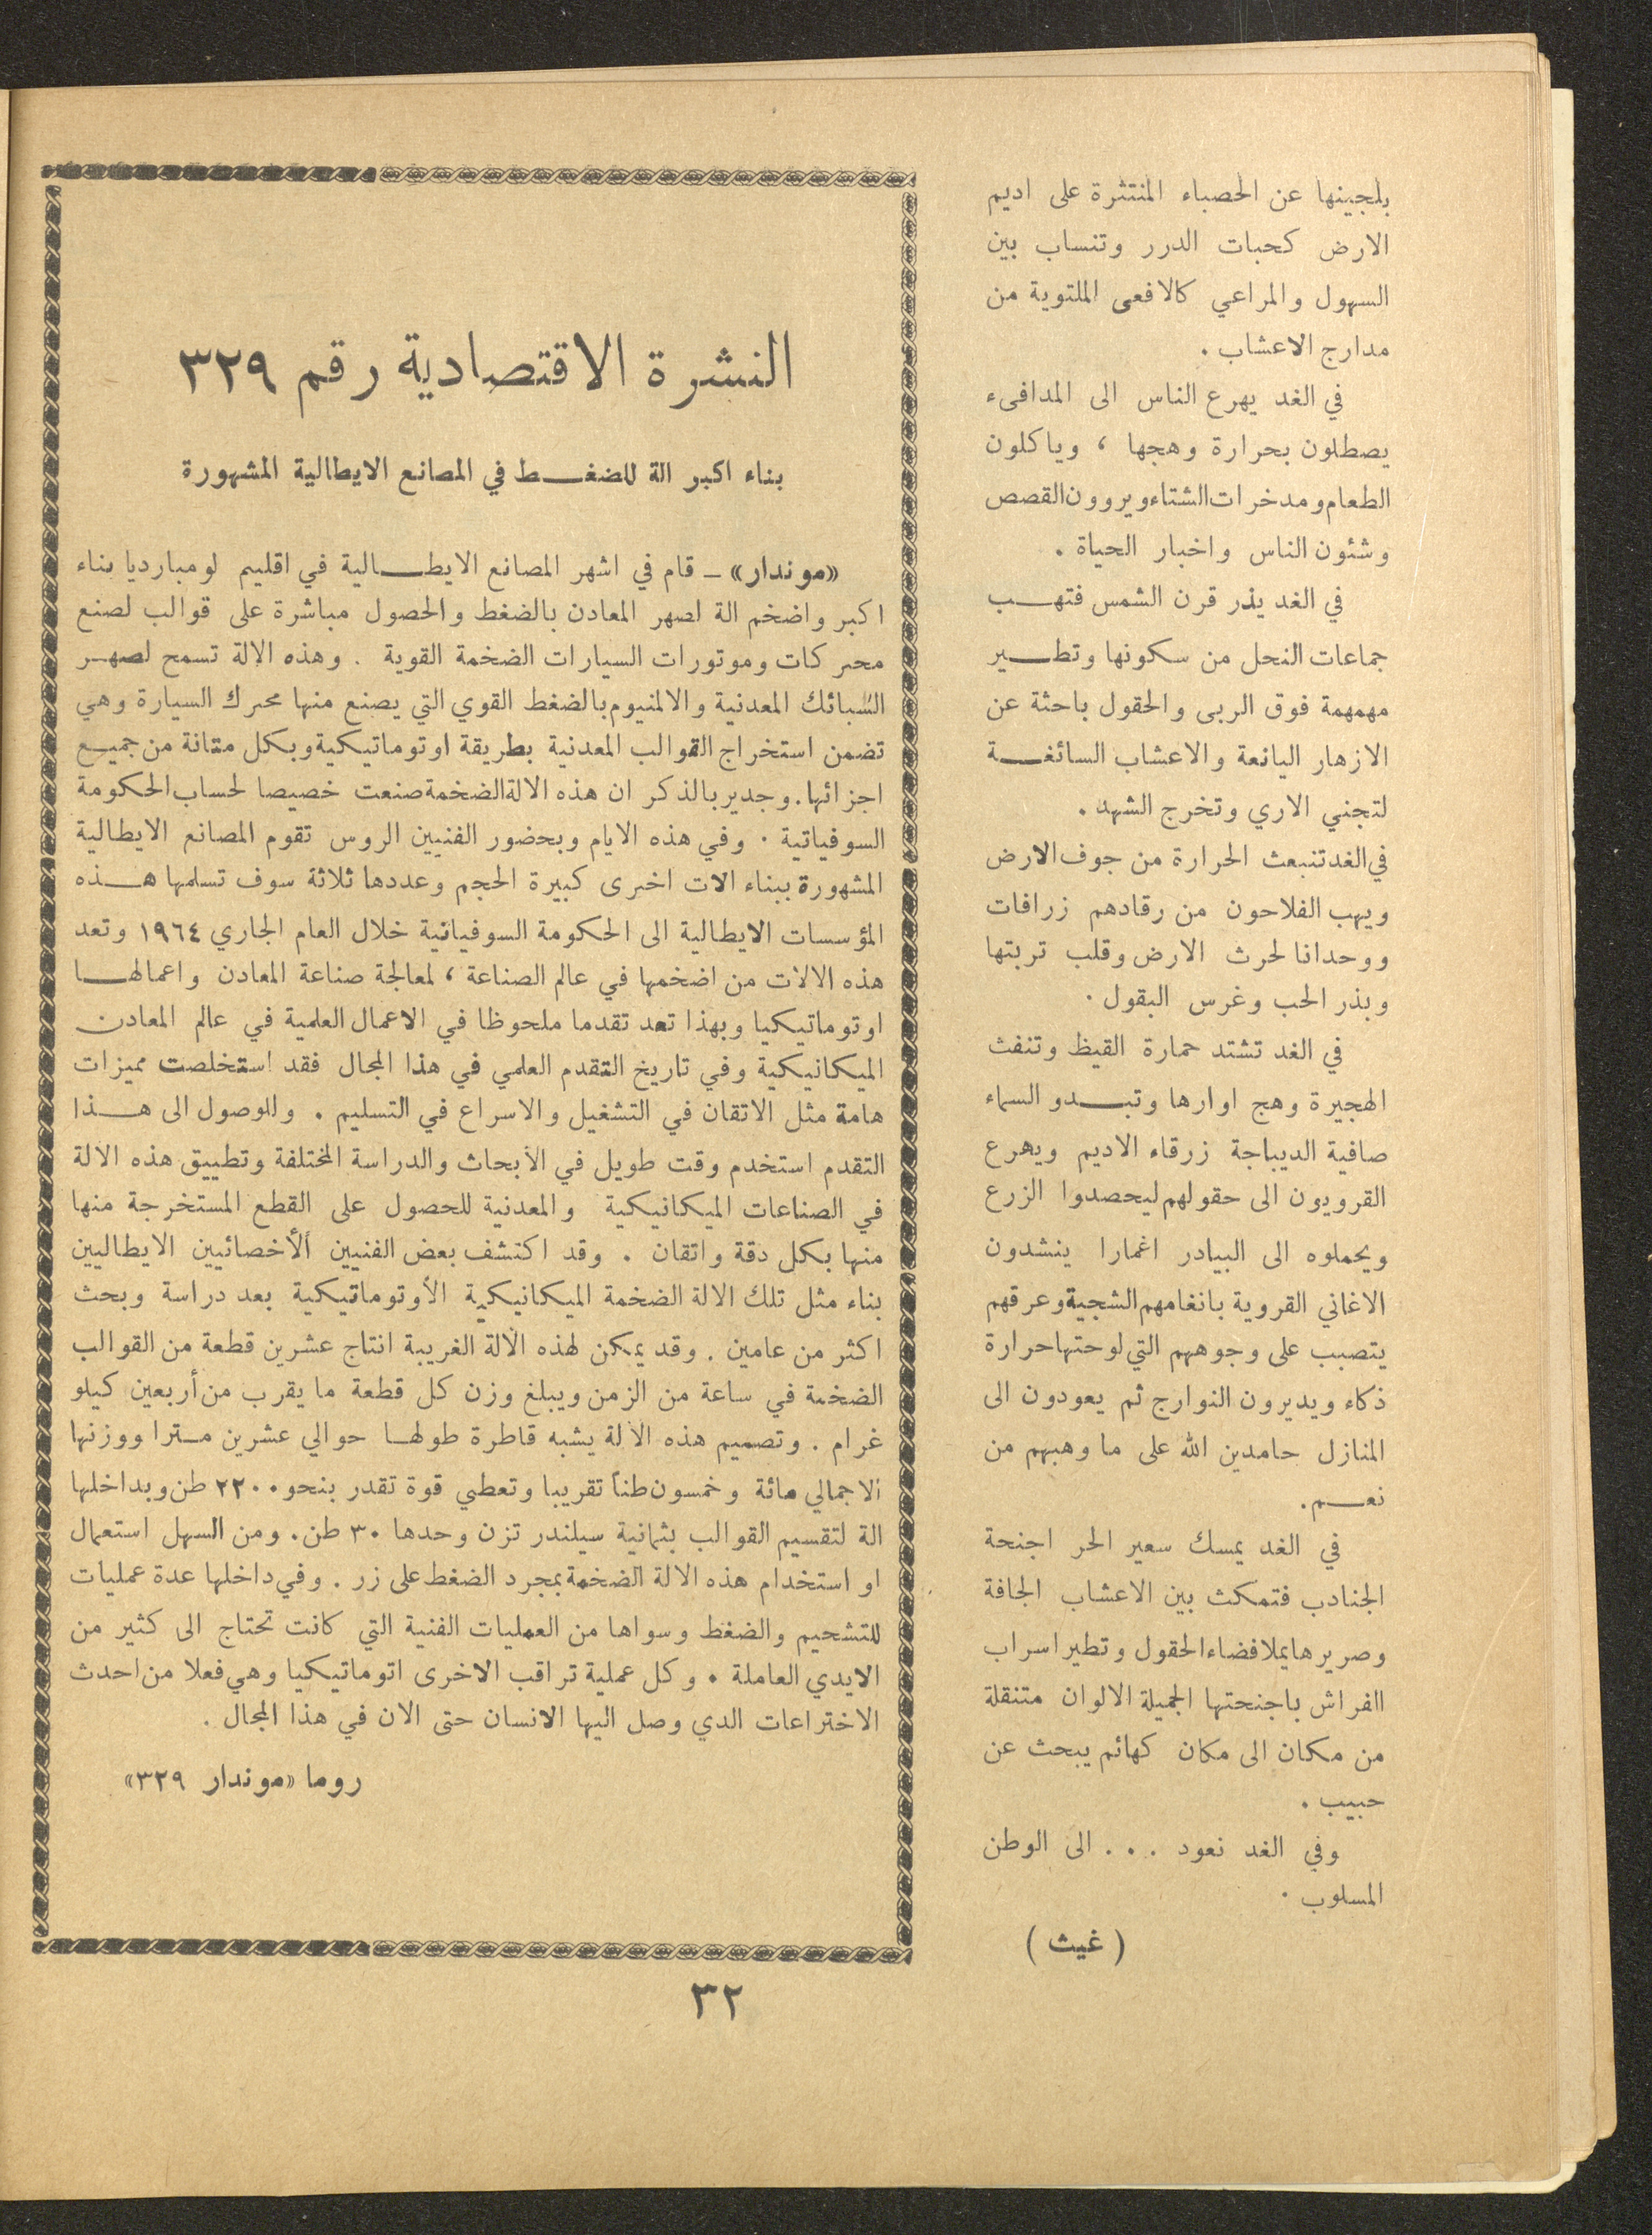 بلجينها عن الحصباء المنتثرة على اديم
الارض كحبات الدرر وتنساب بين
السهول والمراعي كالافعى الملتوية من
مدارج الاعشاب .
في الغد يهرع الناس الى المدافىء
يصطلون بحرارة وهجها ، وياكلون
الطعام ومدخرات الشتاء ويروون القصص
وشئون الناس واخبار الحياة .
في الغد يذر قرن الشمس فتهــب
جماعات النحل من سكونها وتطــير
مهمهمة فوق الربى والحقول باحثة عن
الازهار اليانعة والاعشاب السائغــة
لتجني الاري وتخرج الشهد .
في الغد تنبعث الحرارة من جوف الارض
ويهب الفلاحون من رقادهم زرافات
ووحدانا لحرث الارض وقلب تربتها
وبذر الحب وغرس البقول .
في الغد تشتد حمارة القيظ وتنفث
الهجيرة وهج اوارها وتبــدو السماء
صافية الديباجة زرقاء الاديم ويهرع
القرويون الى حقولهم ليحصدوا الزرع
ويحملوه الى البيادر اغمارا ينشدون
الاغاني القروية بانغامهم الشجية وعرقهم
يتصبب على وجوههم التي لوحتها حرارة
ذكاء ويديرون النوارج ثم يعودون الى
المنازل حامدين الله على ما وهبهم من
نعــم .
في الغد يمسك سعير الحر اجنحة
الجنادب فتمكث بين الاعشاب الجافة
وصريرها يملا فضاء الحقول وتطير اسراب
الفراش باجنحتها الجميلة الالوان متنقلة
من مكان الى مكان كهائم يبحث عن
حبيب .
وفي الغد نعود . . . الى الوطن
المسلوب .
( غيث )
النشرة الاقتصادية رقم ٣٢٩
بناء اكبر الة للضغــط في المصانع الايطالية المشهورة
«موندار» ـ قام في اشهر المصانع الايطــالية في اقليم لومبارديا بناء
اكبر واضخم الة لصهر المعادن بالضغط والحصول مباشرة على قوالب لصنع
محركات وموتورات السيارات الضخمة القوية . وهذه الالة تسمح لصهــر
السبائك المعدنية والالمنيوم بالضغط القوي التي يصنع منها محرك السيارة وهي
تضمن استخراج القوالب المعدنية بطريقة اوتوماتيكية وبكل متانة من جميــع
اجزائها . وجدير بالذكر ان هذه الالة الضخمة صنعت خصيصا لحساب الحكومة
السوفياتية . وفي هذه الايام وبحضور الفنيين الروس تقوم المصانع الايطالية
المشهورة ببناء الات اخرى كبيرة الحجم وعددها ثلاثة سوف تسلمها هــذه
المؤسسات الايطالية الى الحكومة السوفياتية خلال العام الجاري ١٩٦٤ وتعد
هذه الالات من اضخمها في عالم الصناعة ، لمعالجة صناعة المعادن واعمالهــا
اوتوماتيكيا وبهذا تعد تقدما ملحوظا في الاعمال العلمية في عالم المعادن
الميكانيكية وفي تاريخ التقدم العلمي في هذا المجال فقد استخلصت مميزات
هامة مثل الاتقان في التشغيل والاسراع في التسليم . وللوصول الى هــذا
التقدم استخدم وقت طويل في الأبحاث والدراسة المختلفة وتطبيق هذه الالة
في الصناعات الميكانيكية والمعدنية للحصول على القطع المستخرجة منها
منها بكل دقة واتقان . وقد اكتشف بعض الفنيين الأخصائيين الايطاليين
بناء مثل تلك الالة الضخمة الميكانيكية الأوتوماتيكية بعد دراسة وبحث
اكثر من عامين . وقد يمكن لهذه الالة الغريبة انتاج عشرين قطعة من القوالب
الضخمة في ساعة من الزمن ويبلغ وزن كل قطعة ما يقرب من أربعين كيلو
غرام . وتصميم هذه الالة يشبه قاطرة طولهــا حوالي عشرين مــترا ووزنها
الاجمالي مائة وخمسون طناً تقريبا وتعطي قوة تقدر بنحو ٢٢٠٠ طن وبداخلها
الة لتقسيم القوالب بثمانية سيلندر تزن وحدها ٣٠ طن . ومن السهل استعمال
او استخدام هذه الالة الضخمة بمجرد الضغط على زر . وفي داخلها عدة عمليات
للتشحيم والضغط وسواها من العمليات الفنية التي كانت تحتاج الى كثير من
الايدي العاملة . وكل عملية تراقب الاخرى اتوماتيكيا وهي فعلا من احدث
الاختراعات الدي وصل اليها الانسان حتى الان في هذا المجال .
روما «موندار ٣٢٩»
٣٢